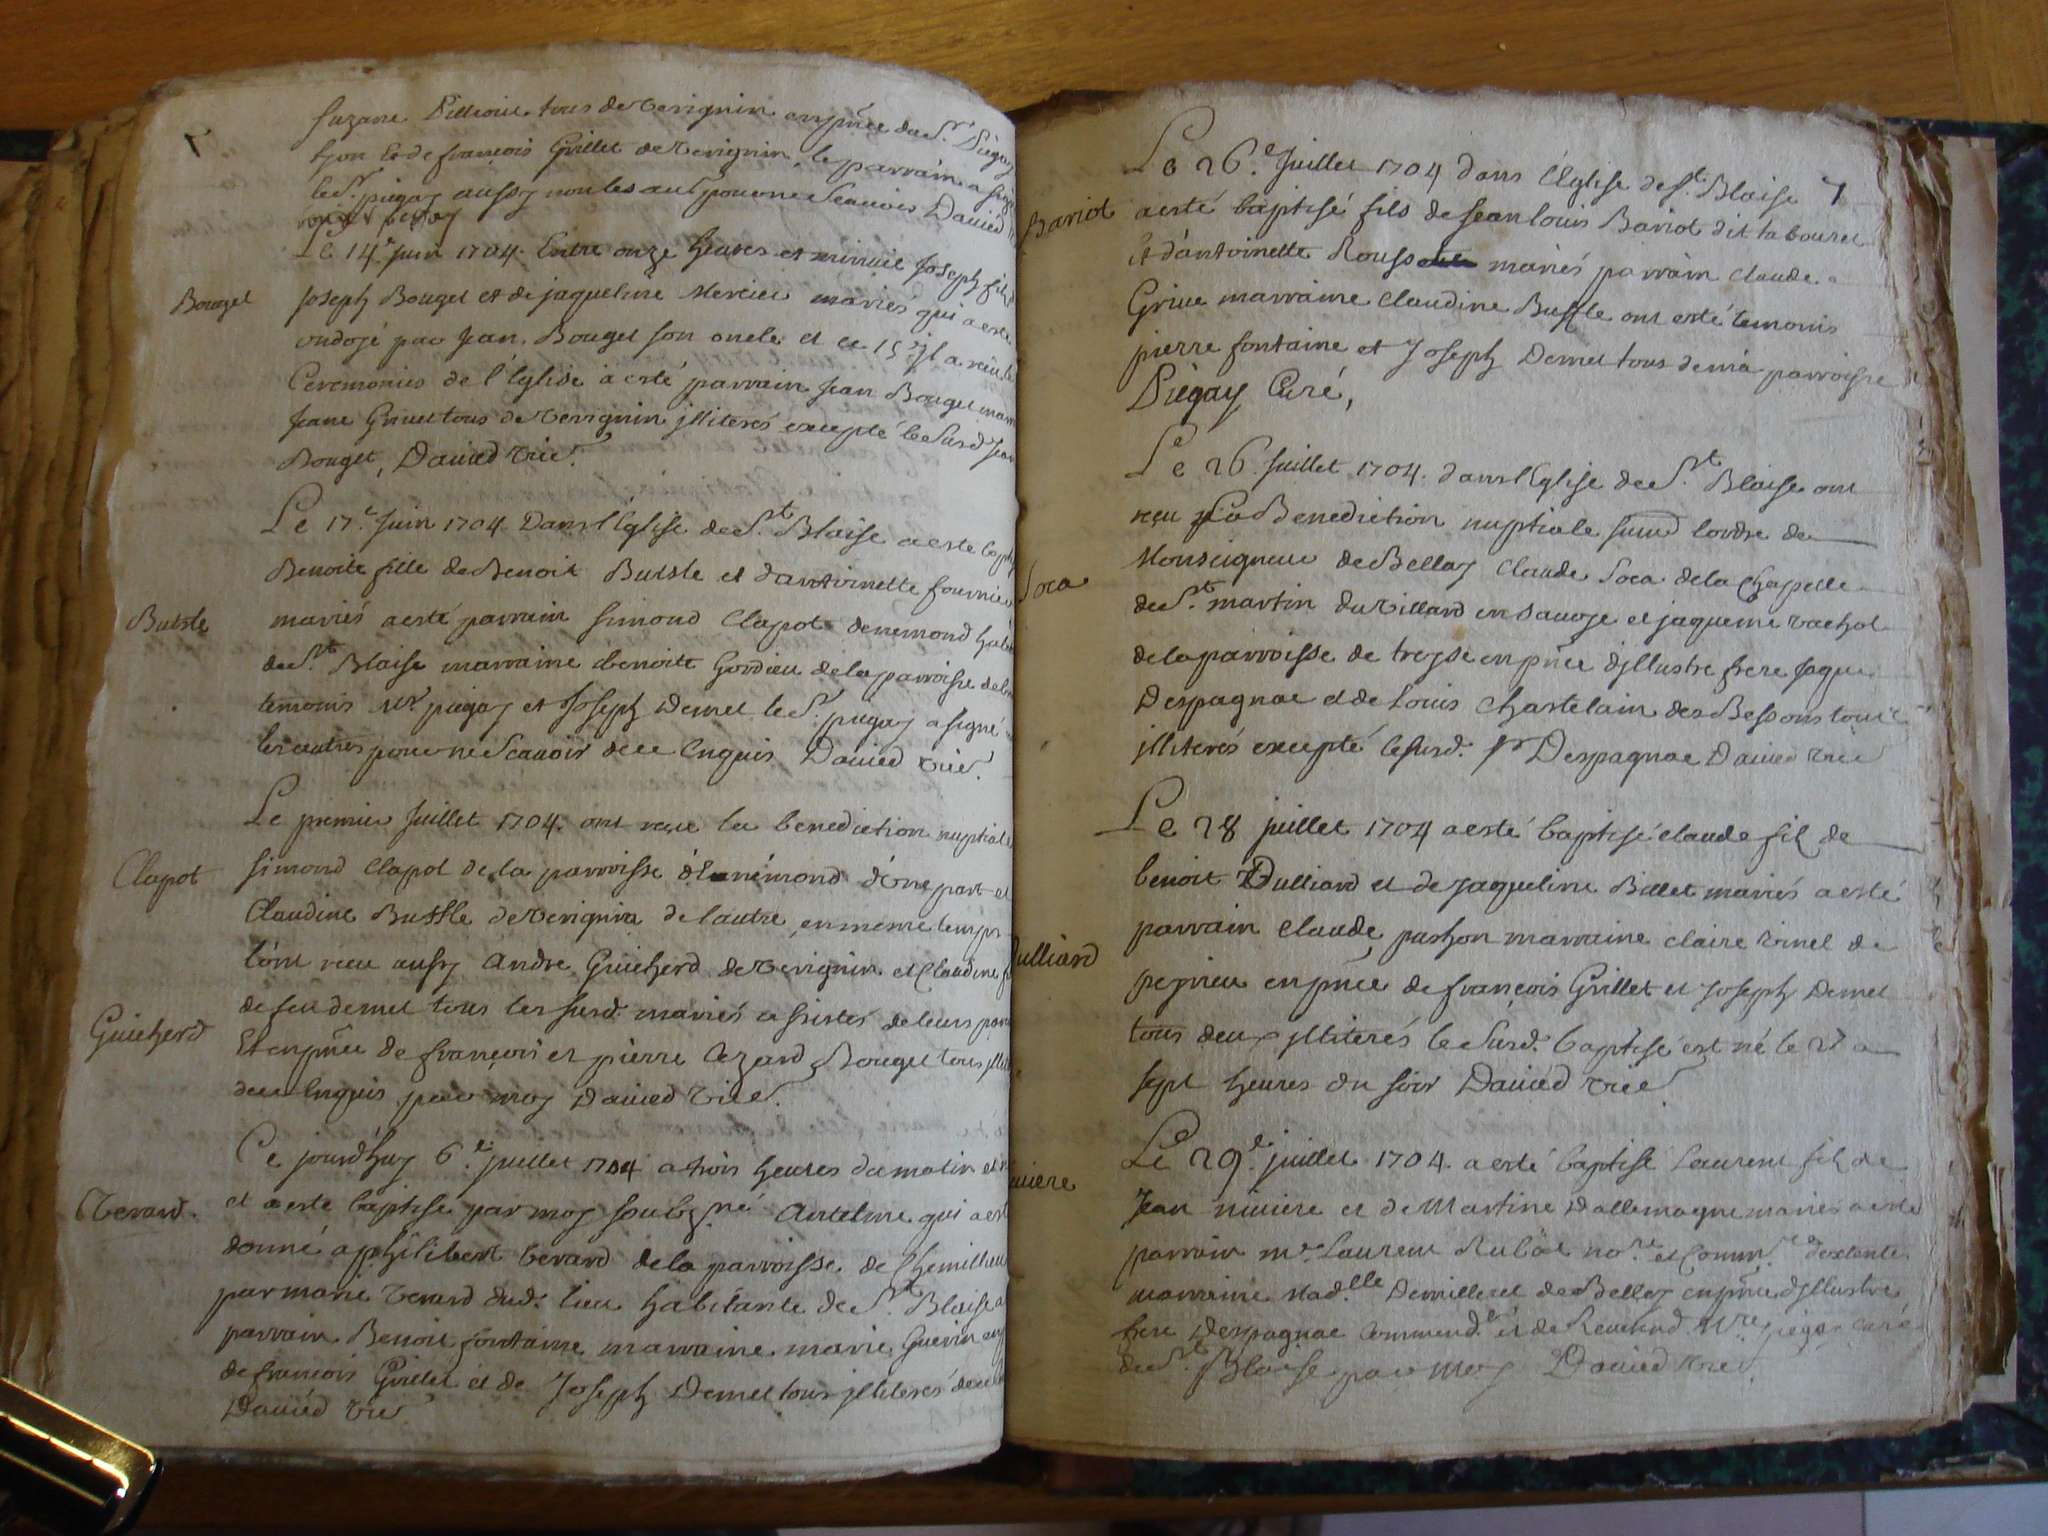 Suzane tous de Verignin en pñce du Sr. Piegay
Lyon Et de françois Grillet de Verignin, le parrain a signé
le Sr. piegay aussy non les au pour ne Scavoir Dauied
Le 14e. Juin 1704. Entre onze heures et minuit Joseph fils
Bouget
Joseph Bouget et de jaqueline Mercier mariés qui a esté
ondojé par Jean Bouget son oncle et ce 15e jl a reçu le
Ceremonies de l'Eglise a esté parrain Jean Bouget mar
Jeane Grive tous de Verignin jlliterés excepté le Susd Jean
Bouget, Dauied vice.
Le 17e. Juin 1704. Dans l'Eglise de St. Blaise a esté bap
Benoite fille de Benoit Buffle et d'antoinette fournier
Buffle
mariés a esté parrain simond Clapot denemond hab
de St. Blaise marraine benoite Gordieu de la parroisse de
temoins Mr piegay et Joseph Demet le Sr. piegay a signé
les autres pour ne Scavoir de ce Enquis Dauied vice.
Le premier Juillet 1704. ont reçu la benediction nuptiale
Clapot
simond Clapot de la parroisse d'Anémond d'une part et
Claudine Buffle de Verignin de l'autre, en meme temps
l'ont receu aussy Andre Guicherd de Verignin et Claudine
Guicherd
de feu demet tous les susd. mariés assistés de leurs par
Et en pñce de françois et pierre Cezard Bouget tous jlli
de ce Enquis par moy Dauied vice.
Ce jourd'huy 6e. juillet 1704 a trois heures du matin est
Verard.
et a esté baptisé par moy soubzné Antelme qui a esté
donné a philibert berard de la parroisse de Chemillieu
par marie Verard dud. lieu habitante de St. Blaise a
parrain Benoit fontaine marraine marie Guerin en
de françois Grillet et de Joseph Demet tous jlliterés de ce
Dauied vice
Le 26e. Juillet 1704 dans l'Eglise de St. Blaise
7
Bariot
a esté baptisé fils de Jean louis Bariot dit labouret
Et d'antoinette Rouss mariés parrain Claude
Grive marraine Claudine Buffle ont esté temoins
pierre fontaine et Joseph Demet tous de ma parroisse
Piegay Curé,
Le 26 Juillet 1704. dans l'Eglise de St. Blaise ont
reçu la Benediction nuptiale suiud l'ordre de
Monseigneur de Bellay Claude Soca de la Chapelle
Soca
de St. martin du Villard en sauoje et jaqueme vachot
de la parroisse de treyse en pñce d'jllustre frere Jaque
Despagnac et de Louis Chastelain des Bessons tous
jlliterés excepté le susd. Sr Despagnac Dauied vice
Le 28 juillet 1704 a esté baptisé claude fils de
benoit Dulliard et de jaqueline Billet mariés a esté
ulliard
parrain claude pashon marraine claire vinel de
pegrieu en pñce de françois Grillet et Joseph Demet
tous deux jlliterés le Susd. baptisé est né le 27 a
sept heures du soir Dauied vice.
Le 29e. juillet 1704. a esté baptisé Laurent fils de
Jean niviere et de Martine Dallemagne mariés a esté
uiere
parrain Mr. Laurent Rubat no.re et Comm.re
marraine Mad.lle Demillieret de Belley en pñce d'jllustre
frere Despagnac Commend.r et de Reuerend Mre piegay curé
de St. Blaise par moy Dauied vice.